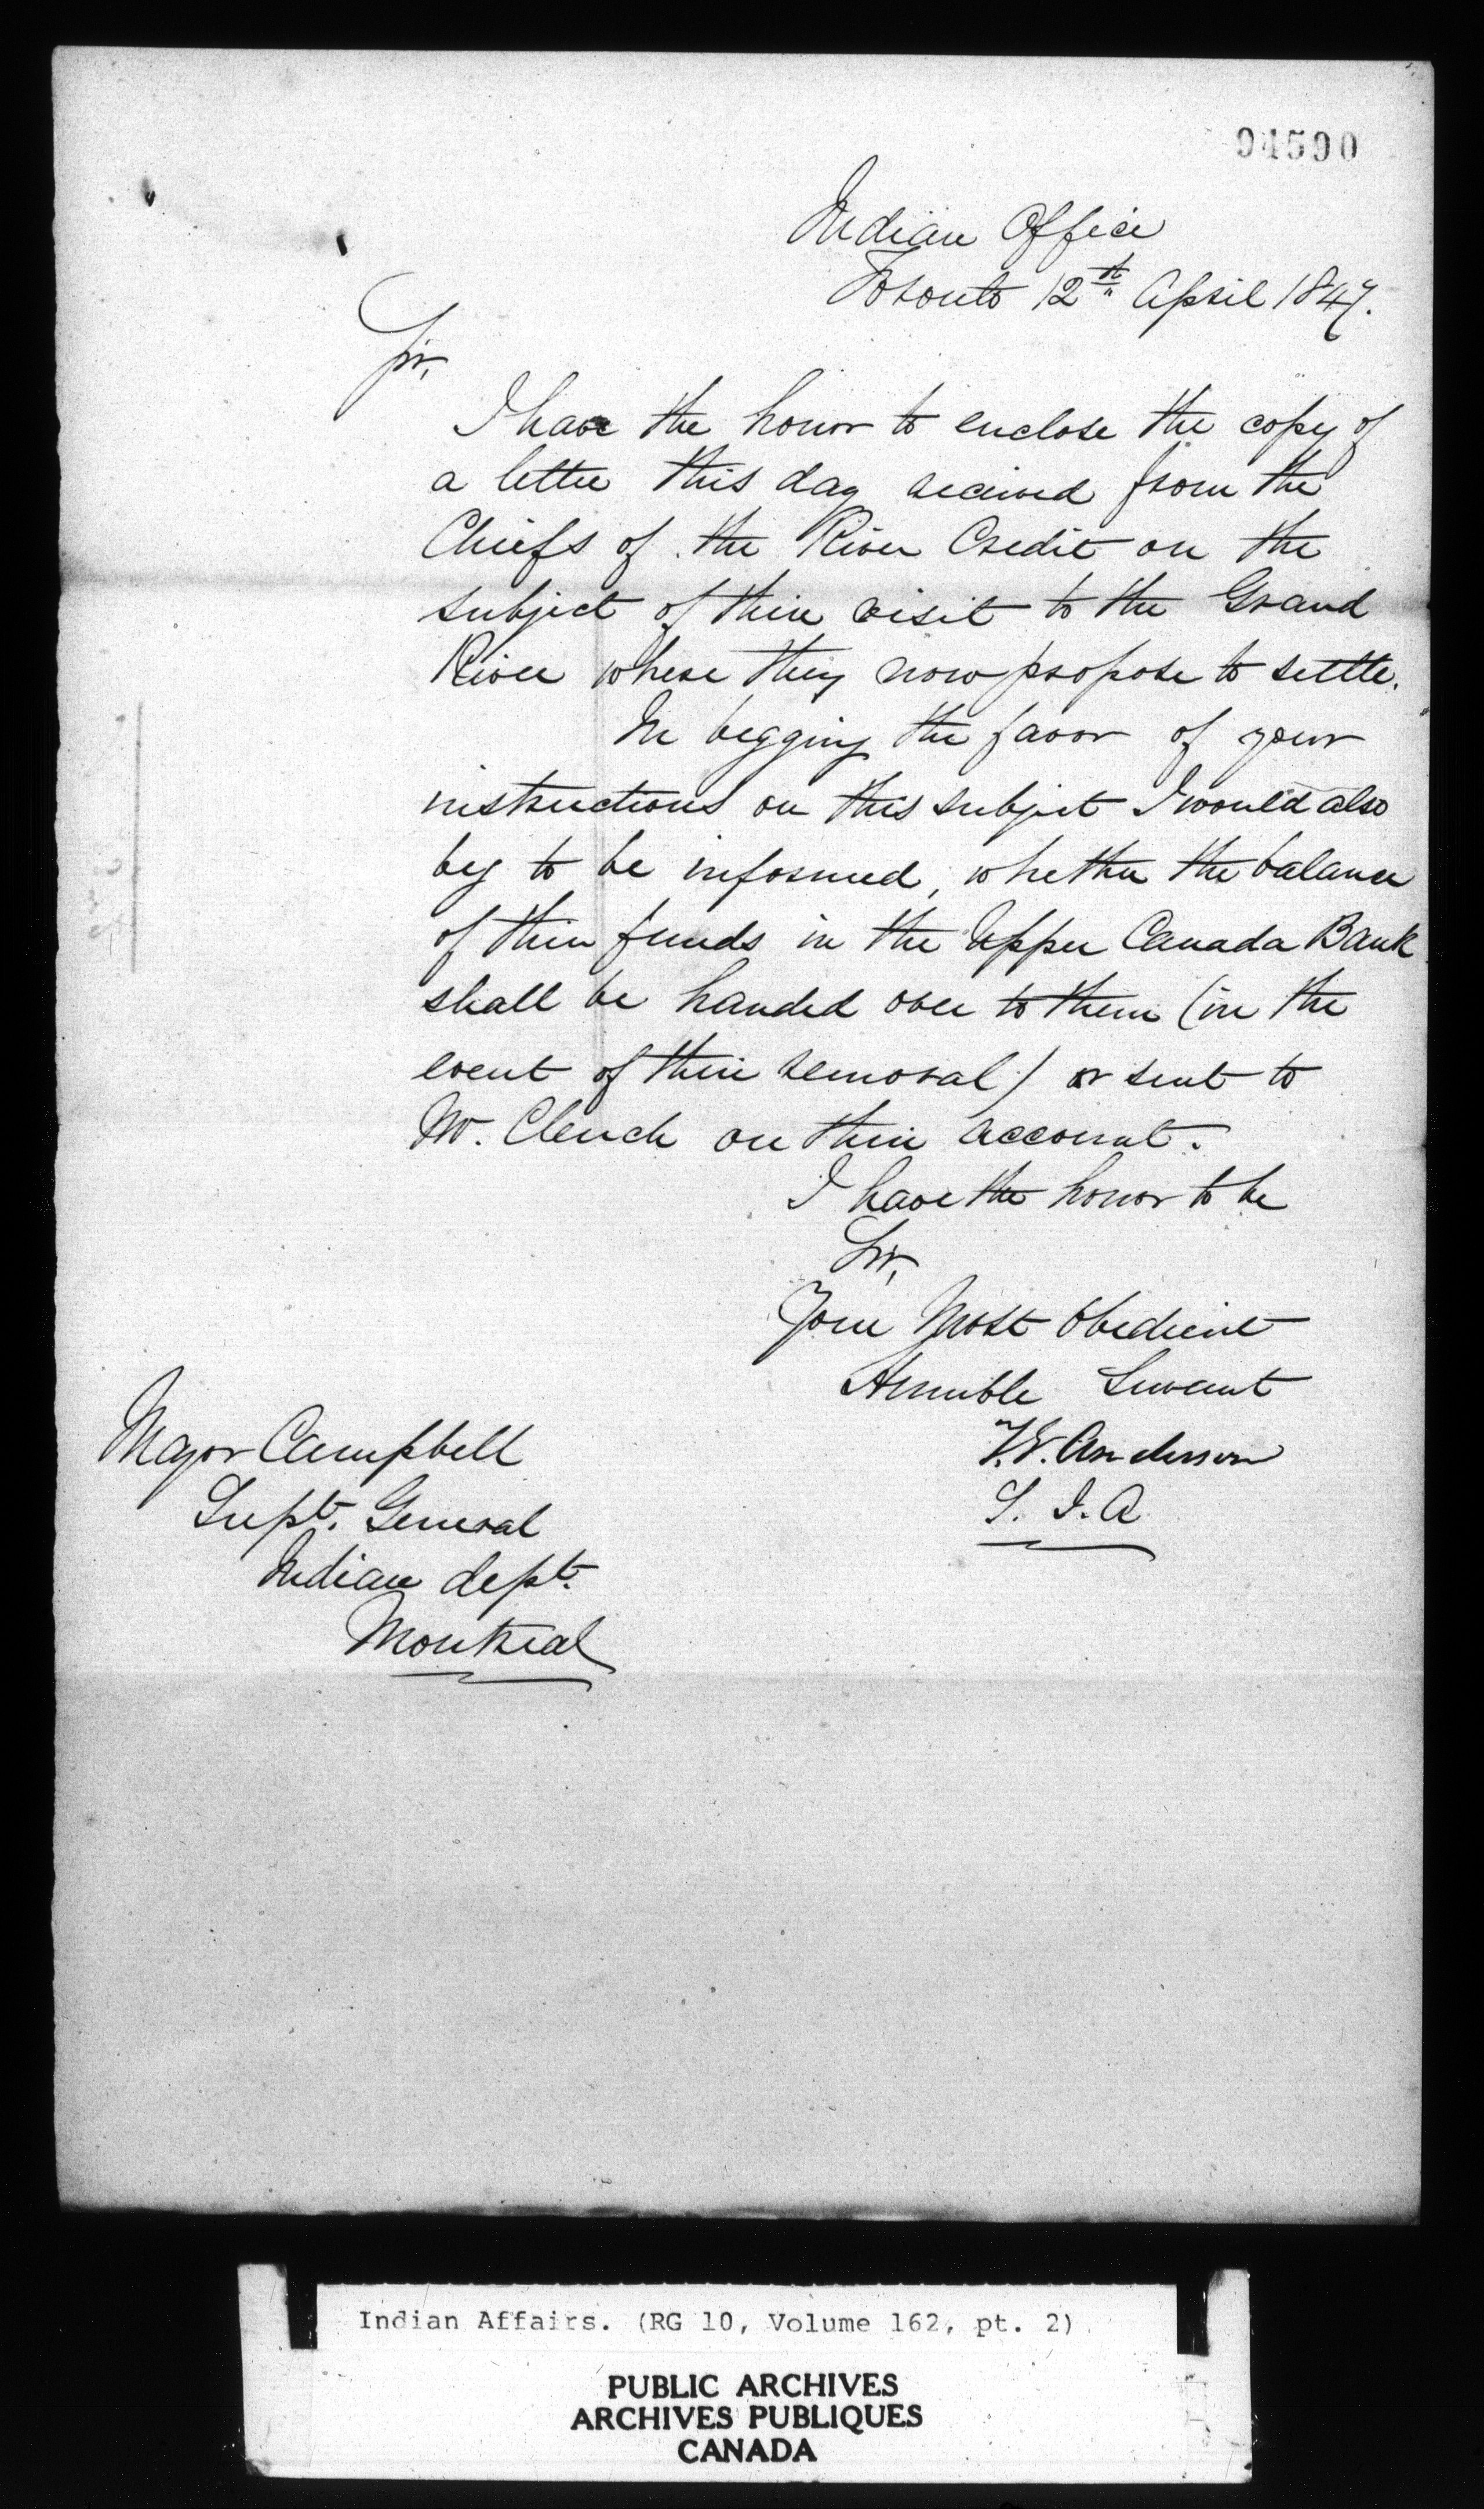 94590
Indian Office
Toronto 12th April 1847.
Sir,
I have the honor to enclose the copy of
a letter this day received from the
Chiefs of the River Credit on the
subject of their visit to the Grand
River where they now propose to settle.
In begging the favor of your
instructions on this subject I would also
beg to be informed, whether the balance
of their funds in the Upper Canada Bank
shall be handed over to them (in the
event of their removal) or sent to
Mr. Clench on their account.
I have the honor to be
Sir,
Your Most Obedient
Humble Servant
T.G. Anderson
S. I. A
Major Campbell
Supt. General
Indian dept.
Montreal
Indian Affairs. (RG 10, Volume 162, pt. 2)
PUBLIC ARCHIVES
ARCHIVES PUBLIQUES
CANADA